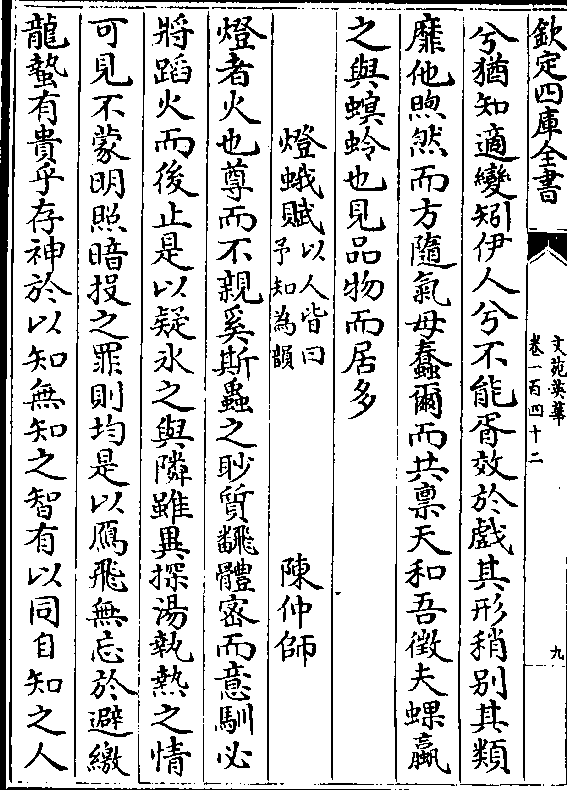 欽定四庫全書
文苑英華
卷一百四十二
九
兮猶知適變矧伊人兮不能胥效於戲其形稍别其類
靡他喣然而方隨氣母蠢爾而共禀天和吾徴夫蜾蠃
之與螟蛉也見品物而居多
燈蛾賦以人皆曰予知為韻
陳仲師
燈者火也尊而不親奚斯蟲之眇質飜體宻而意馴必
將蹈火而後止是以疑氷之與隣雖異探湯執熱之情
可見不蒙明照暗投之罪則均是以鴈飛無忘於避繳
龍蟄有貴乎存神於以知無知之智有以同自知之人